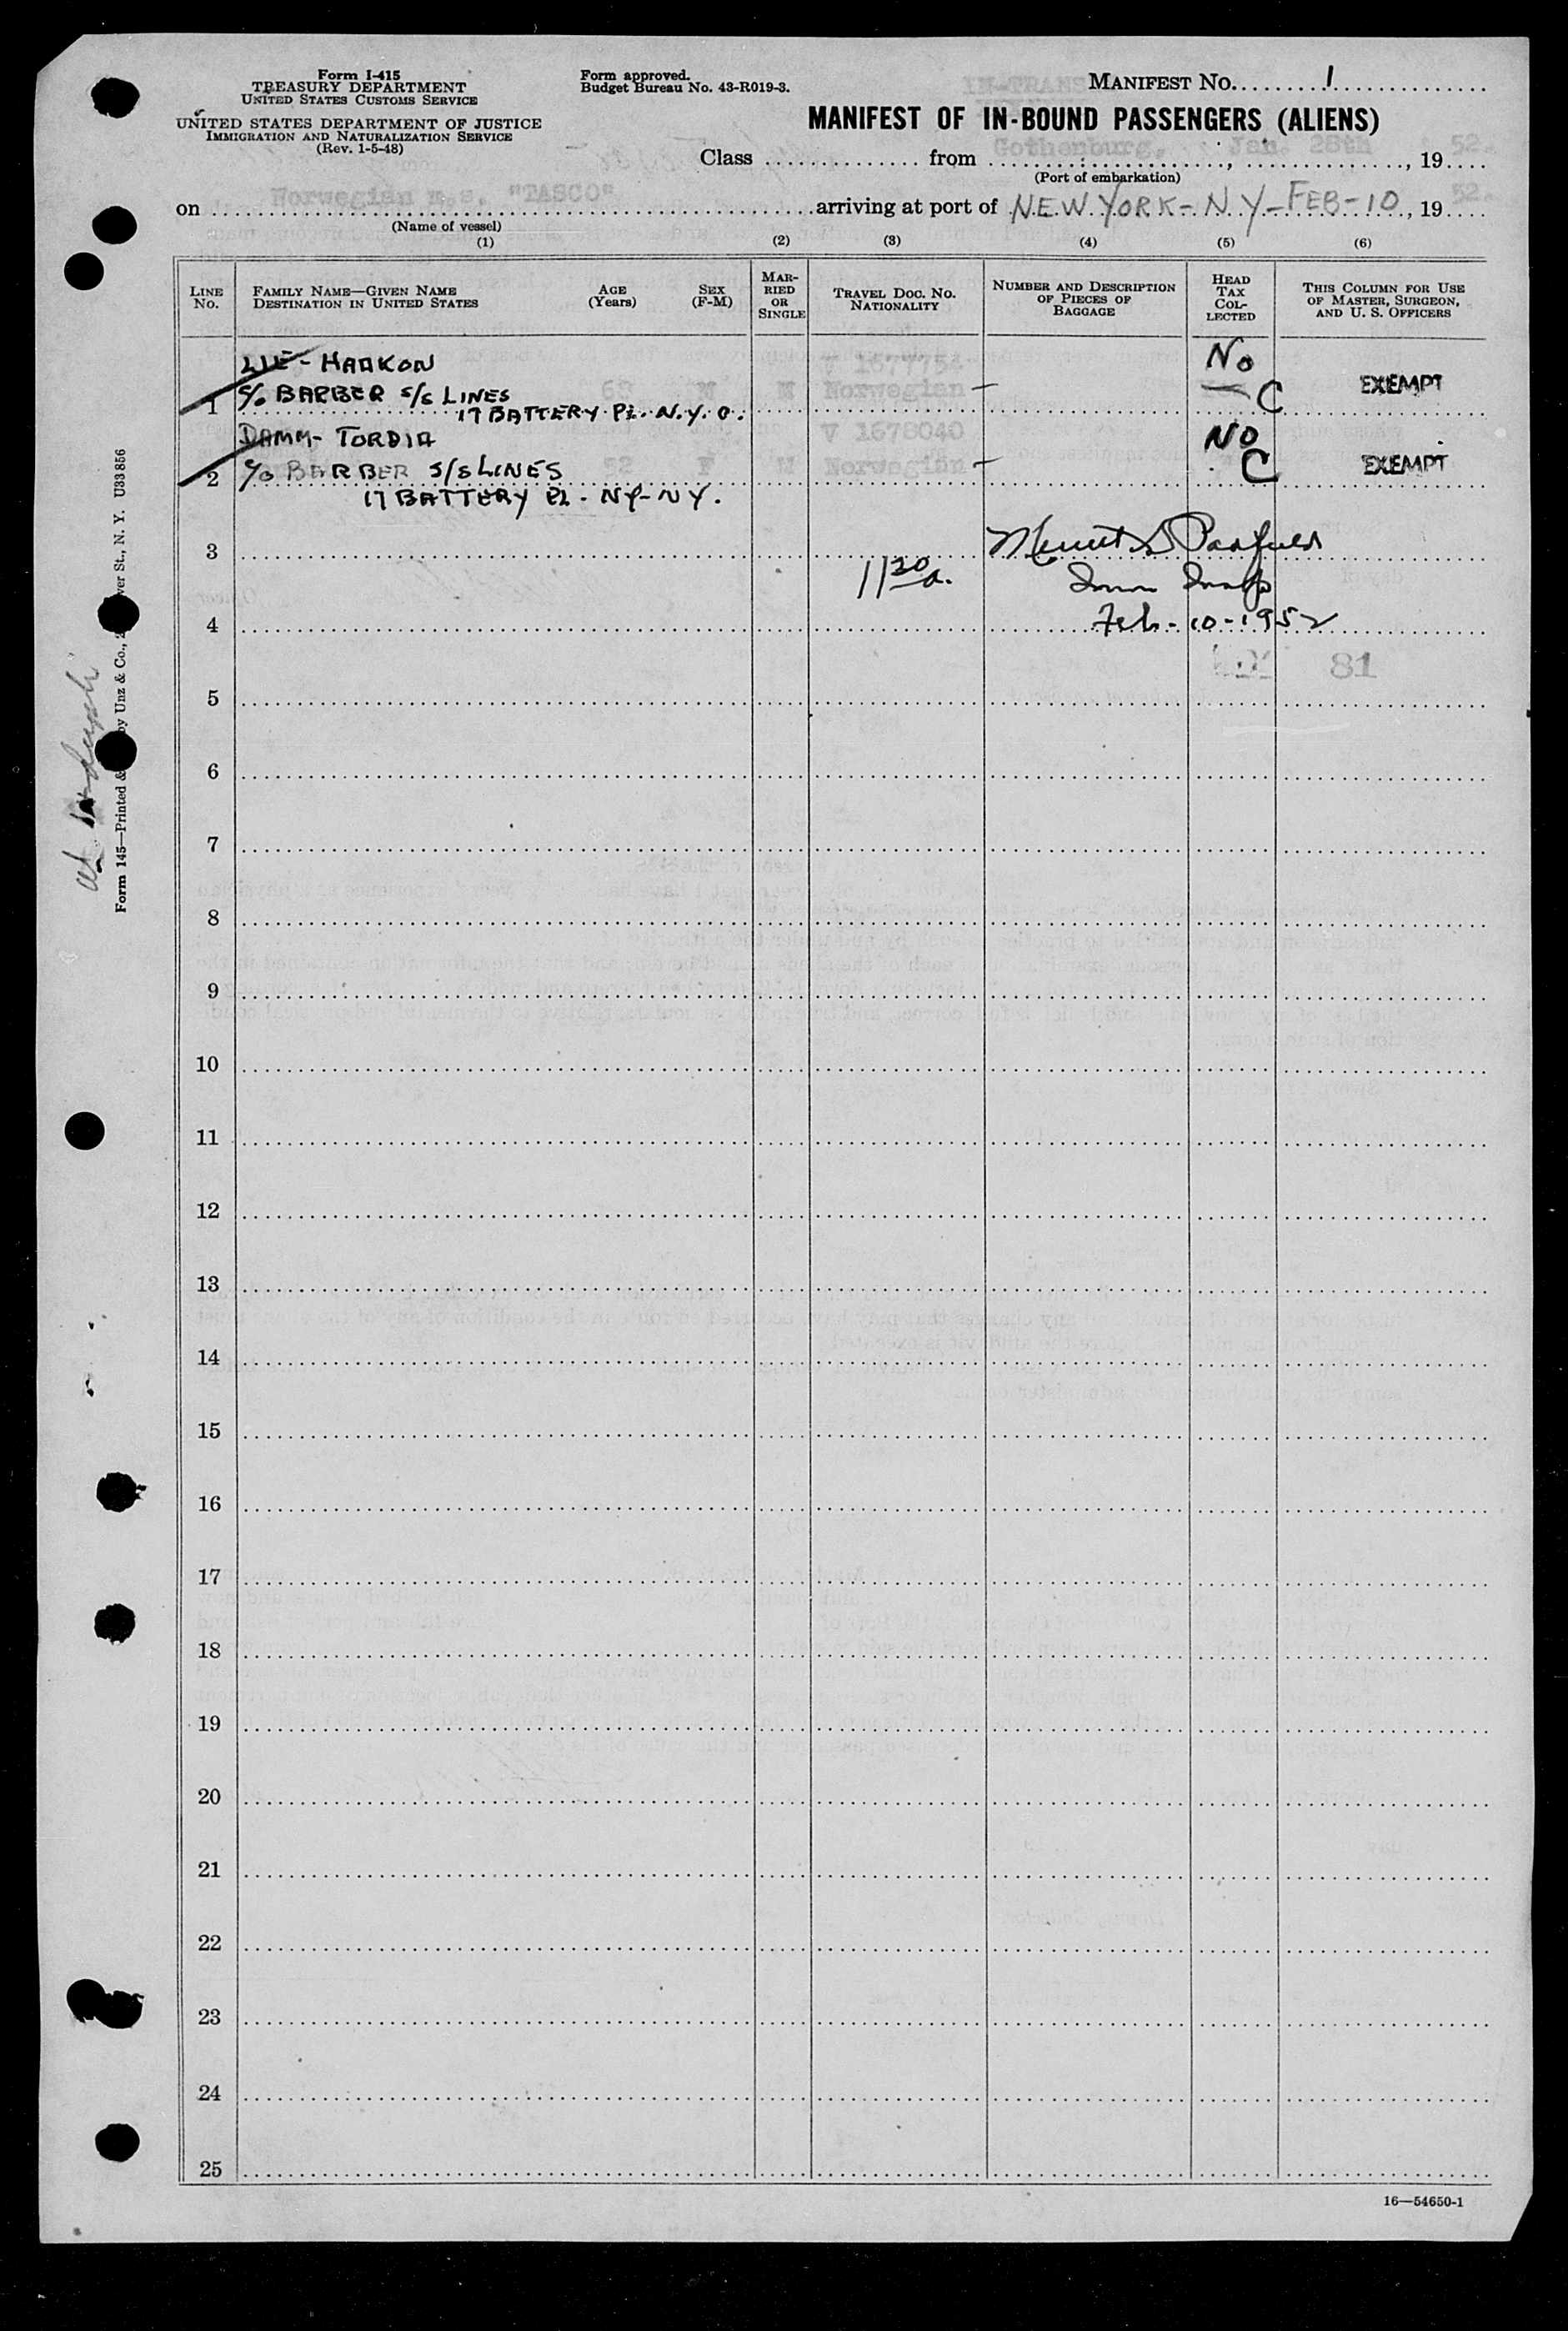 Form I-415
TREASURY DEPARTMENT
UNITED STATES CUSTOMS SERVICE
UNITED STATES DEPARTMENT OF JUSTICE
IMMIGRATION AND NATURALIZATION SERVICE
(Rev. 1-5-48)
Form approved.
Budget Bureau No. 43-R019-3.
IN-TRANS
MANIFEST No. 1
MANIFEST OF IN-BOUND PASSENGERS (ALIENS)
Class from Gothenburg, Jan. 28th, 1952.
(Port of embarkation)
on Norwegian m.s. "TASCO" arriving at port of NEW YORK - N Y - FEB - 10, 1952.
(Name of vessel)
(1) (2) (3) (4) (5) (6)
LINE No.
FAMILY NAME—GIVEN NAME
DESTINATION IN UNITED STATES
AGE (Years)
SEX (F-M)
MARRIED OR SINGLE
TRAVEL DOC. NO.
NATIONALITY
NUMBER AND DESCRIPTION OF PIECES OF BAGGAGE
HEAD TAX COLLECTED
THIS COLUMN FOR USE OF MASTER, SURGEON, AND U. S. OFFICERS
LIE - HAAKON V 1677754 No
c/o BARBER S/S LINES M M Norwegian — C EXEMPT
1 17 BATTERY PL. N.Y. C.
DAMM - TORDIA V 1678040 NO
2 c/o BARBER S/S LINES 52 F M Norwegian — C EXEMPT
17 BATTERY PL - NY - NY.
3
11 30 a.
Feb - 10 - 1952
4
81
5
6
7
8
9
10
11
12
13
14
15
16
17
18
19
20
21
22
23
24
25
16—54650-1
Form 145—Printed & by Unz & Co., ver St., N. Y. U33856